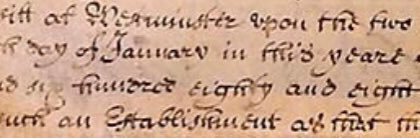 att Westminster upon the two
day of January in this yeare
hundred eighty and eight
such an Establishment as that